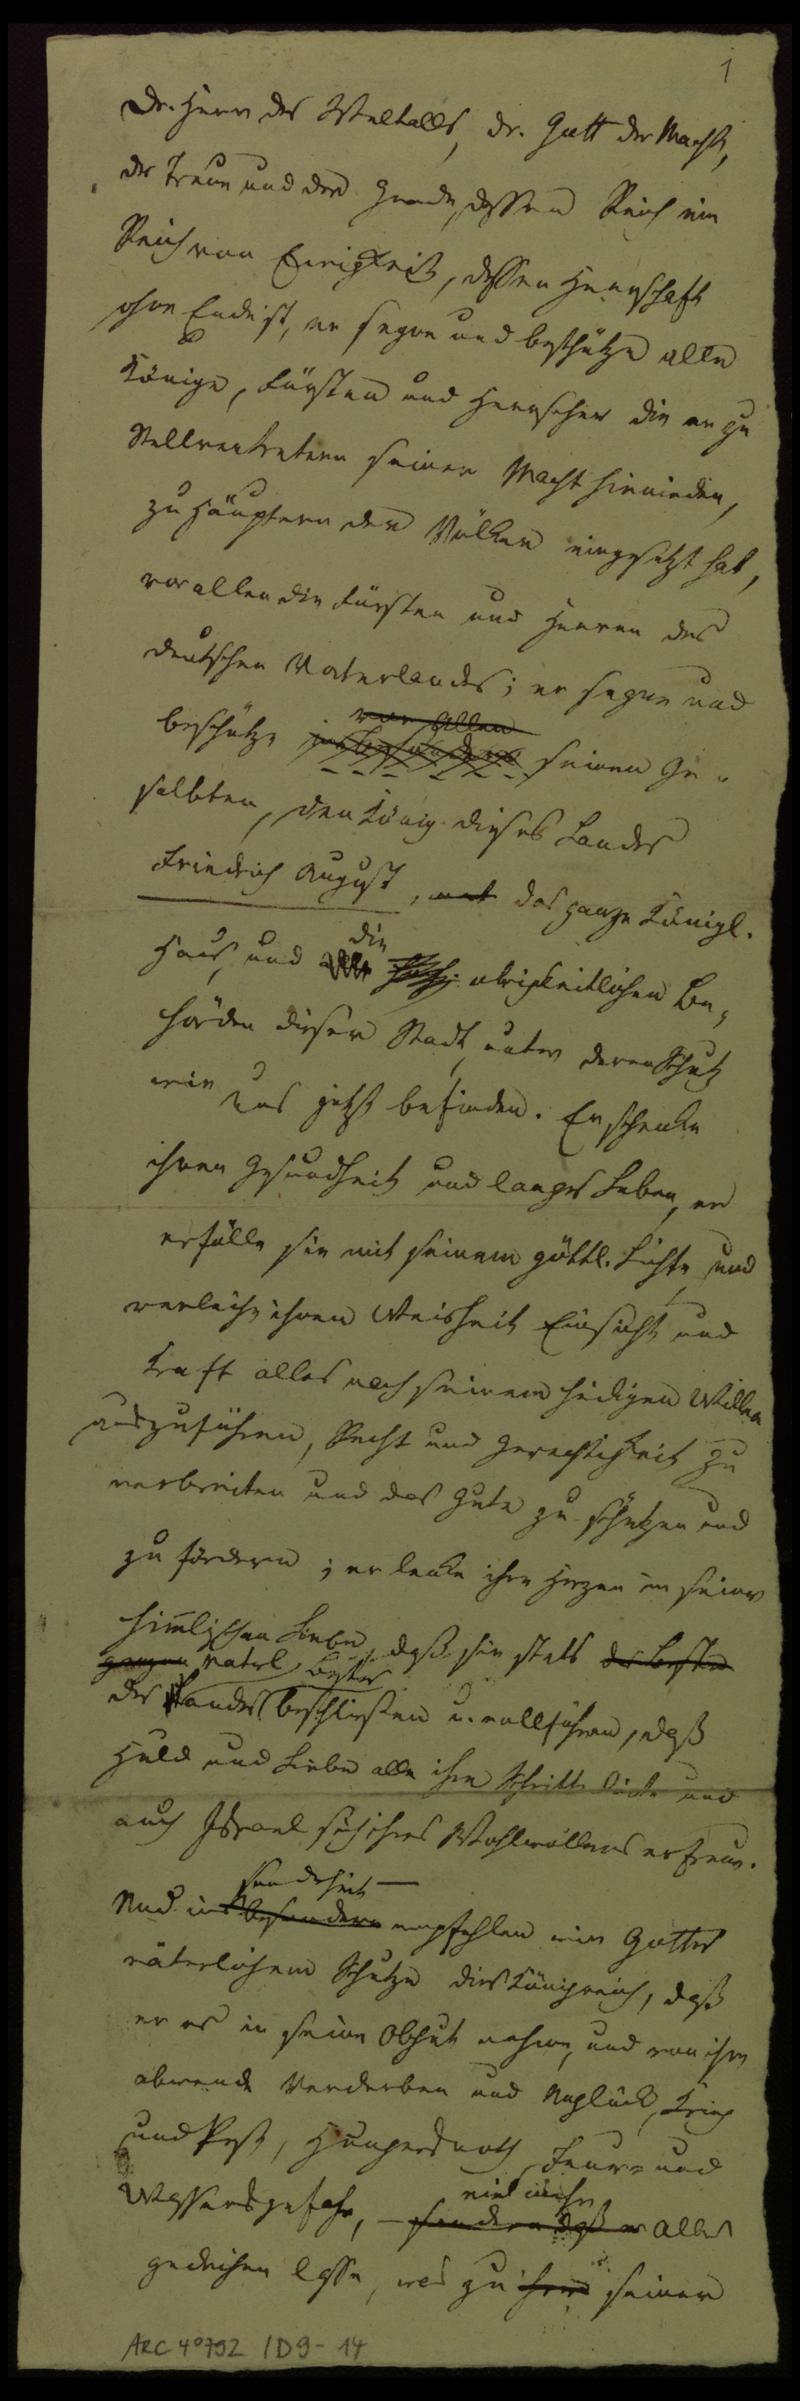 1
Dr. Herr des Weltalls, dr. Gott der Macht,
der Treue und der Gnade, dessen Reich ein
Reich von Ewigkeit, dessen Herrschaft
ohne Ende ist, er segne und beschütze alle
Könige, Fürsten und Herrscher die er zu
Stellvertretern seiner Macht hienieden,
zu Häuptern der Völker eingesetzt hat,
vor allen die Fürsten und Herren des
deutschen Vaterlandes; er segne und
vor Allen
beschütze insbesondere seinen Ge-
salbten, den König dieses Landes
Friedrich August, und das ganze Königl.
die
Haus, und alle obrigkeitlichen Be-
hörden dieser Stadt, unter deren Schutz
wir uns jetzt befinden. Er schenke
ihnen Gesundheit und langes Leben, er
erfülle sie mit seinem göttl. Lichte und
verleihe ihnen Weisheit Einsicht und
Kraft alles nach seinem heiligen Willen
auszuführen, Recht und Gerechtigkeit zu
verbreiten und das Gute zu schützen und
zu fördern; er lenke ihre Herzen in seiner
himlischen Liebe, daß sie stets das Beste
gegen Vaterl. Bestes
des Landes beschließen u. vollführen, daß
Huld und Liebe alle ihre Schritte leite und
auch Israel sich ihres Wohlwollens erfreue.
sonderheit
Und insbesondere empfehlen wir Gottes
väterlichem Schutze dies Königreich, daß
er es in seine Obhut nehme, und von ihm
abwende Verderben und Unglück, Krieg
und Pest, Hungersnoth, Feuer- und
vielmehr
Wassersgefahr, – sondern daß er alles
gedeihen lasse, was zu ihrer seiner
ARC 4° 792 / D9 - 14